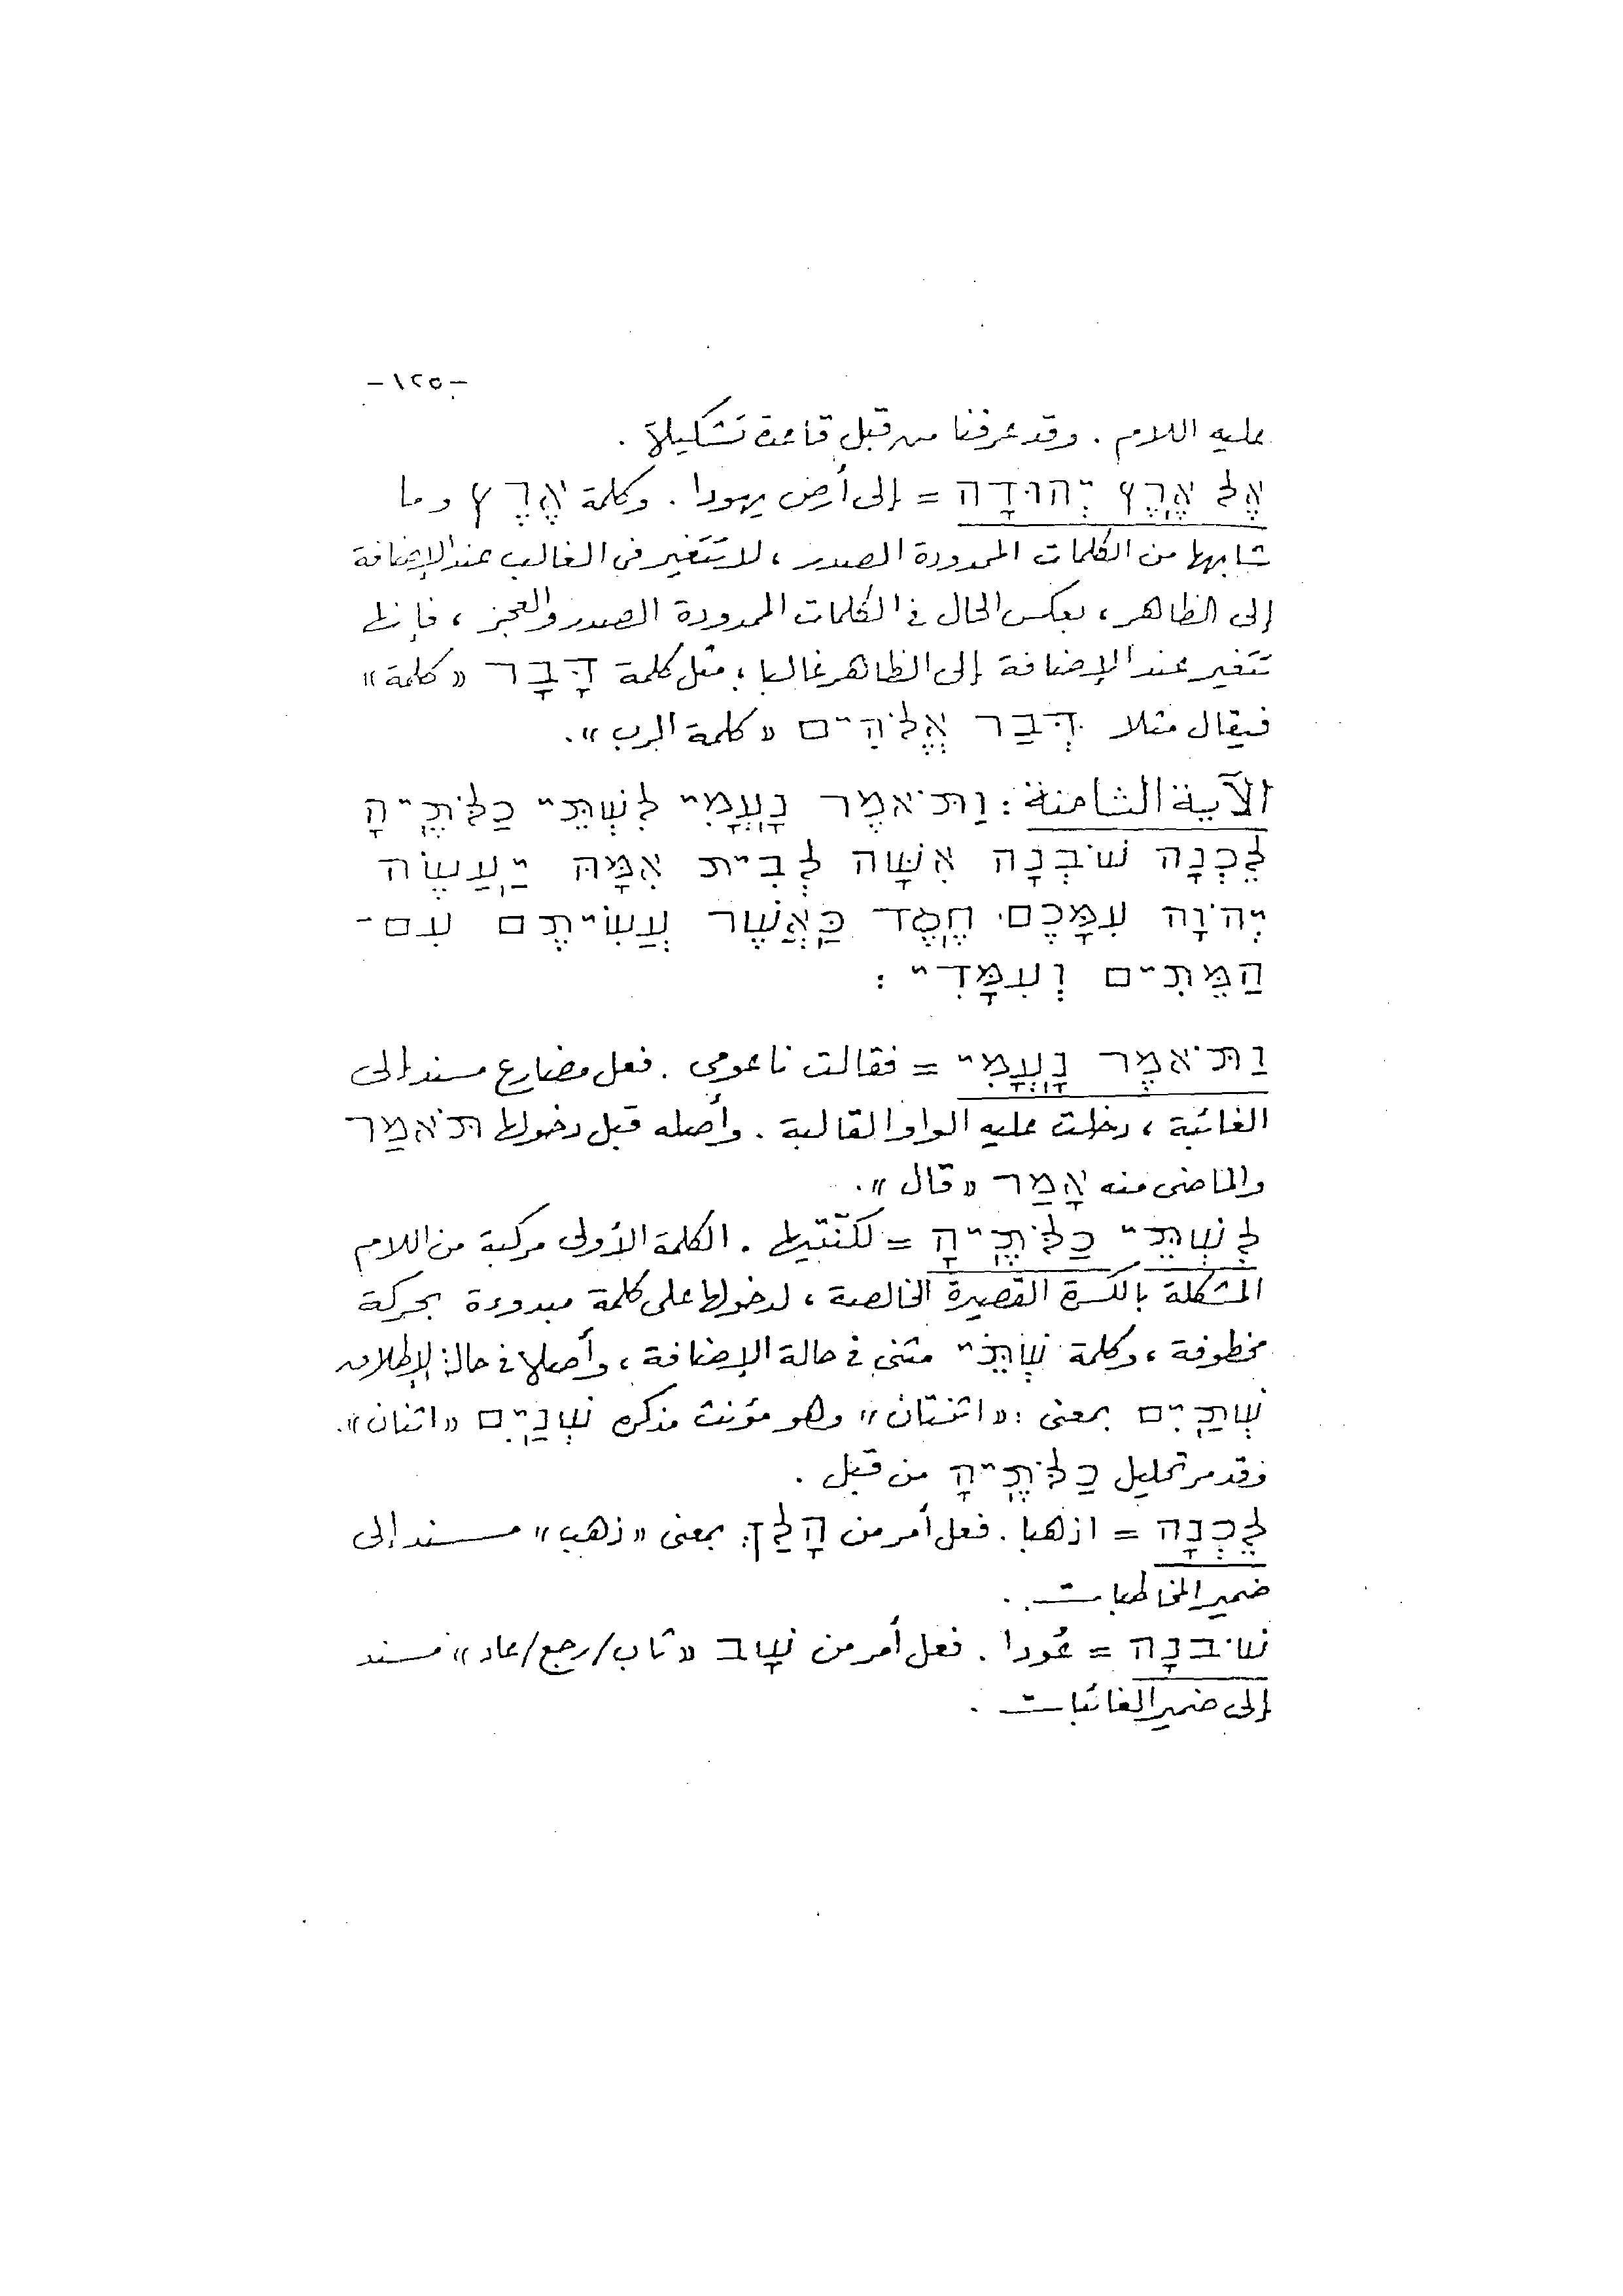 -١٢٥-
عليه اللام . وقد عرفنا من قبل قاعدة تشكيلها .
אֶל אֶרֶץ יְהוּדָה = إلى أرض يهودا . وكلمة אֶרֶץ وما
شابهها من الكلمات الممدودة الصدر ، لا تتغير فى الغالب عند الإضافة
إلى الظاهر ، بعكس الحال فى الكلمات الممدودة الصدر والعجز ، فإنها
تتغير عند الإضافة إلى الظاهر غالبا ، مثل كلمة דָּבָר «كلمة»
فيقال مثلا דְּבַר אֱלֹהִים «كلمة الرب» .
الآية الثامنة : וַתֹּאמֶר נָעֳמִי לִשְׁתֵּי כַלֹּתֶיהָ
לֵכְנָה שֹׁבְנָה אִשָּׁה לְבֵית אִמָּהּ יַעֲשֶׂה
יְהוָֹה עִמָּכֶם חֶסֶד כַּאֲשֶׁר עֲשִׂיתֶם עִם-
הַמֵּתִים וְעִמָּדִי :
וַתֹּאמֶר נָעֳמִי = فقالت ناعومى . فعل مضارع مسند إلى
الغائبة ، دخلت عليه الواو القالبة . وأصله قبل دخولها תֹּאמַר
والماضى منه אָמַר «قال» .
לִשְׁתֵּי כַלֹּתֶיהָ = لكنّتيها . الكلمة الأولى مركبة من اللام
المشكلة بالكسرة القصيرة الخالصة ، لدخولها على كلمة مبدوءة بحركة
مخطوفة ، وكلمة שְׁתֵּי مثنى فى حالة الإضافة ، وأصلها فى حالة الإطلاق
שְׁתַּיִם بمعنى : «اثنتان» وهو مؤنث مذكره שְׁנַיִם «اثنان» .
وقد مر تحليل כַלֹּתֶיהָ من قبل .
לֵכְנָה = اذهبا . فعل أمر من הָלַךְ بمعنى «ذهب» مسند إلى
ضمير المخاطبات .
שֹׁבנָה = عُودا . فعل أمر من שָׁב «تاب/رجع/عاد» مسند
إلى ضمير الغائبات .